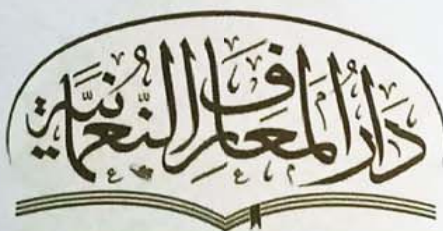 دَارُ الْمَعَارِفِ النُّعْمَانِيَّةِ